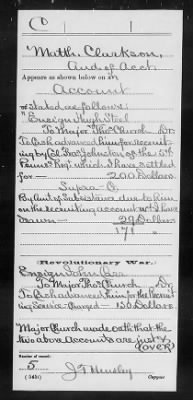 C
Matth. Clarkson,
Aud of Acct
Appears as shown below on an
Account
Stated as follows:
"Ensign Hugh Steel
To Major Thos. Church Dr.
To Cash advanced him for recruit
ing by Col. Fras. Johnston of the 5th
Penna. Regt. which I have settled
for — 200 Dollars
Supra Cr.
By Amt of Subsistence due to him
on the recruiting account wch I have
drawn — 29 Dollars
171
Revolutionary War.
Ensign John
To Major Thos. Church Dr
To Cash advanced him for the recruit
ing Service – Charged — 130 Dollars
Major Church made oath that the
two above Accounts are just &
(OVER)
Number of record:
5
J. T. Hensley
(545) Copyist.